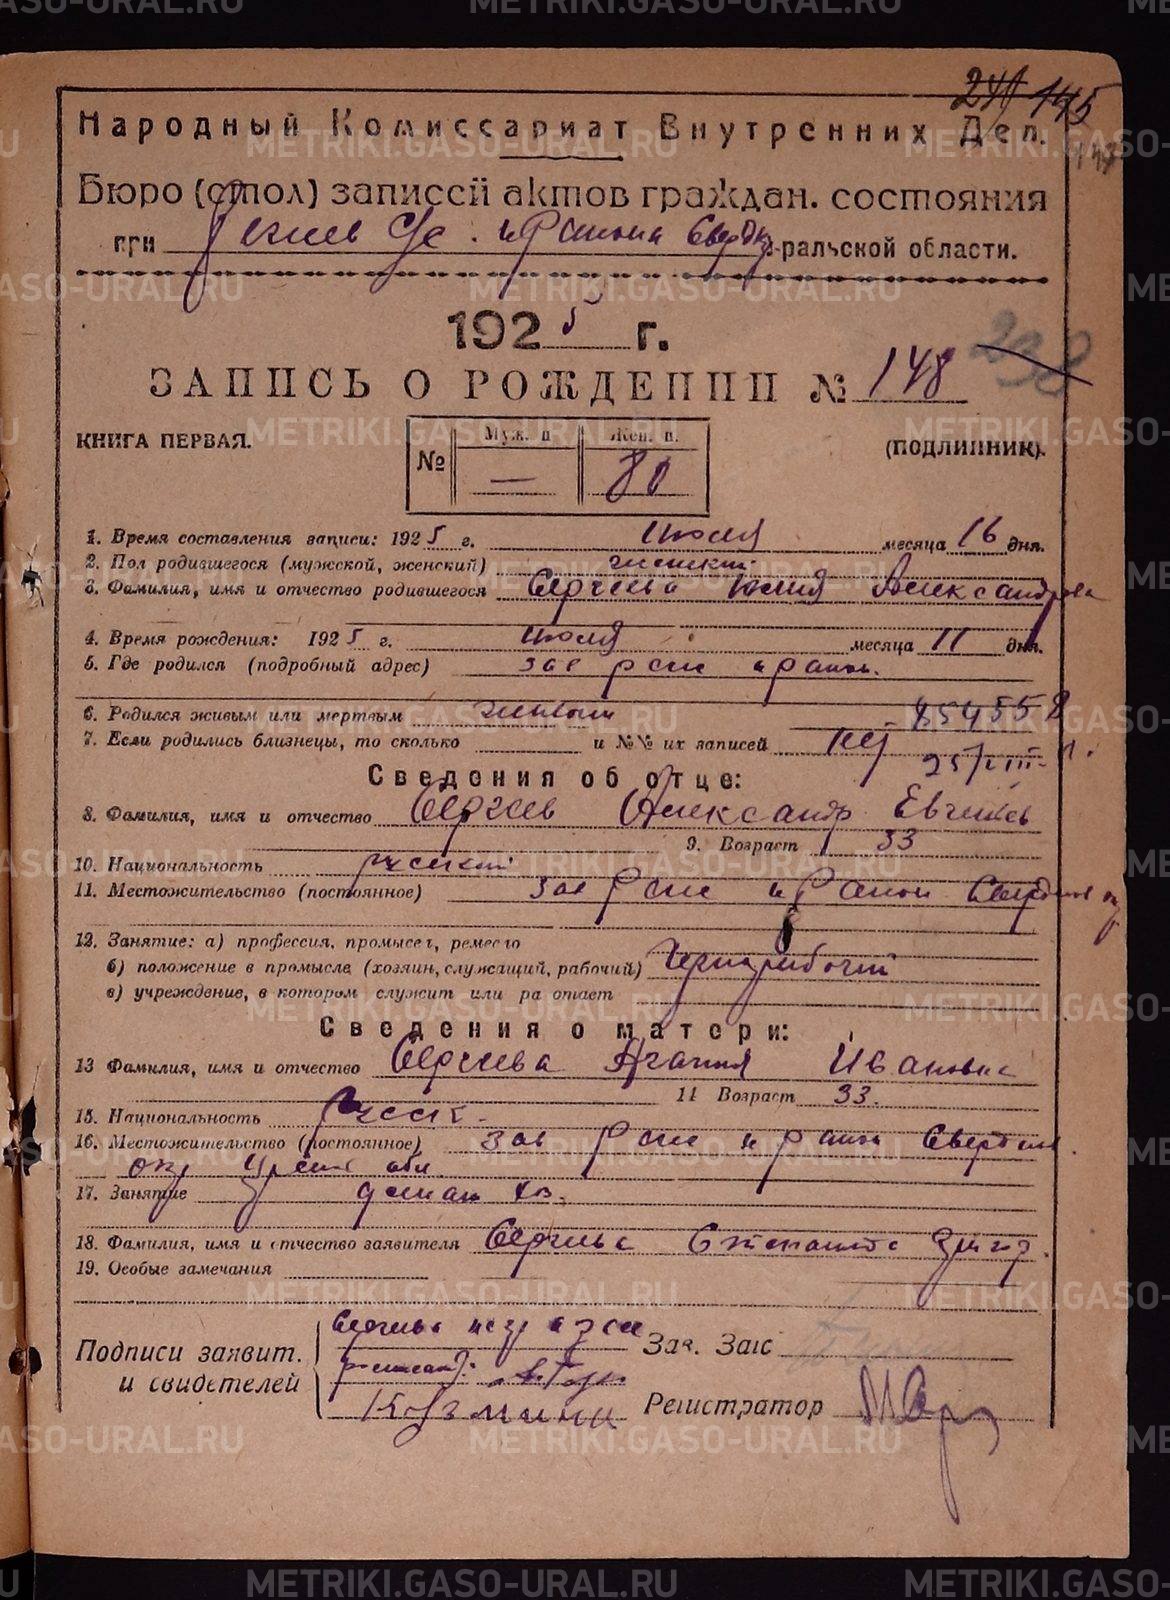 245 145
147
Народный Комиссариат Внутренних Дел.
Бюро (стол) записей актов граждан. состояния
при Режев с/с. и района Свердл Уральской области.
1925 г.
ЗАПИСЬ О РОЖДЕНИИ № 148
238
КНИГА ПЕРВАЯ. (ПОДЛИННИК).
№ Муж. п. — Жен. п. 80
1. Время составления записи: 1925 г. июля месяца 16 дня.
2. Пол родившегося (мужской, женский) женский
3. Фамилия, имя и отчество родившегося Сергеева Юлия Александров
4. Время рождения: 1925 г. июля месяца 11 дня.
5. Где родился (подробный адрес) зав Реж и район.
6. Родился живым или мертвым живым
854558
7. Если родились близнецы, то сколько и №№ их записей
25/VIII-
Сведения об отце:
8. Фамилия, имя и отчество Сергеев Александр Евгеньев
9. Возраст 33
10. Национальность русский
11. Местожительство (постоянное) зав Реж и район Свердлов окр
12. Занятие: а) профессия, промысел, ремесло
б) положение в промысле (хозяин, служащий, рабочий) Чернорабочий
в) учреждение, в котором служит или работает
Сведения о матери:
13 Фамилия, имя и отчество Сергеева Агапия Ивановна
14 Возраст 33.
15. Национальность русск.
16. Местожительство (постоянное) зав Реж и район Свердлов.
окр Уральс обл
17. Занятие домаш хоз.
18. Фамилия, имя и отчество заявителя Сергеева Степанида Григор.
19. Особые замечания
Подписи заявит. и свидетелей
Сергеева негра
Кузьмина
Зав. Загс
Регистратор
METRIKI.GASO-URAL.RU